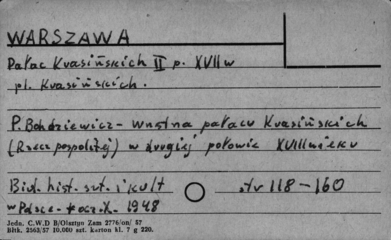 WARSZAWA
Pałac Krasińskich II p. XVII w
pl. Krasińskich.
P. Bohdziewicz - Wnętrza pałacu Krasińskich
(Rzeczpospolitej) w drugiej połowie XVIII wieku
Biul. hist. szt. i kult
str 118-160
w Polsce - 1948
Jedn. C.W.D B/Olsztyn Zam 2776/on/ 57
Bltk. 2563/57 10.000 szt. karton kl. 7 g 220.